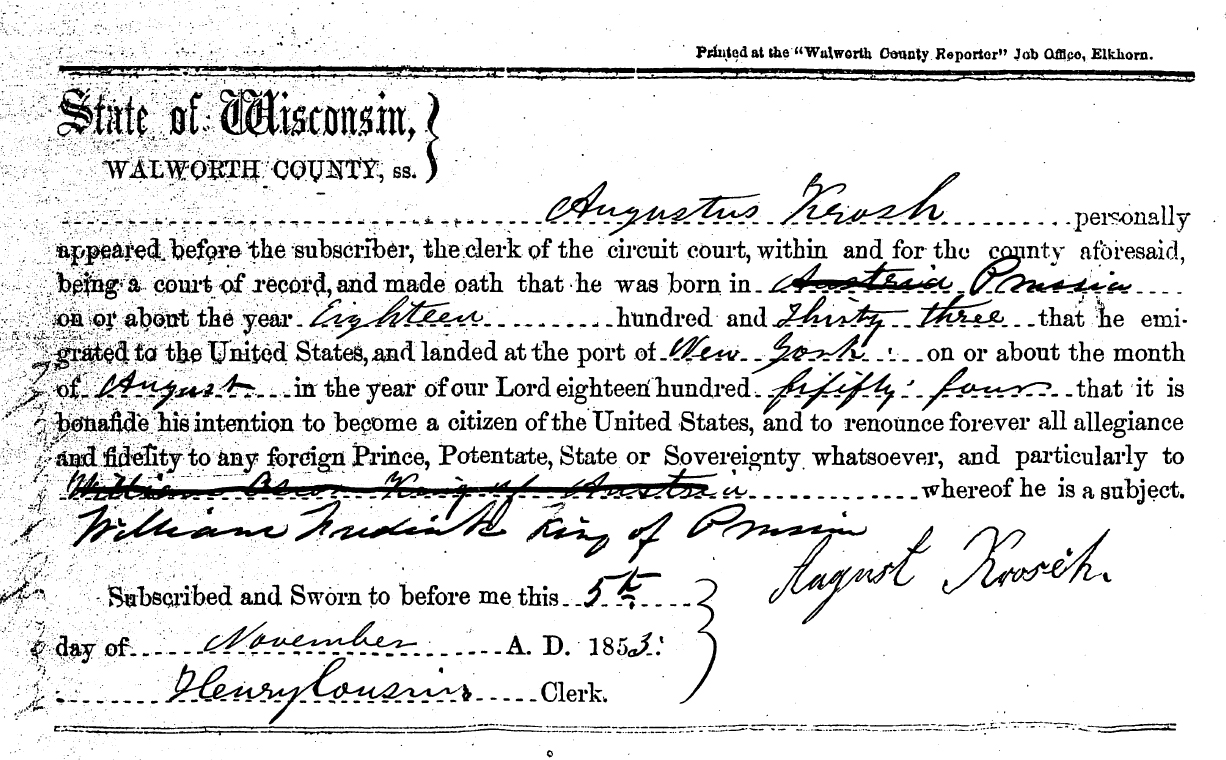 Printed at the "Walworth County Reporter" Job Office, Elkhorn.
State of Wisconsin,
WALWORTH COUNTY, ss.
Augustus Krosh personally
appeared before the subscriber, the clerk of the circuit court, within and for the county aforesaid,
being a court of record, and made oath that he was born in Austria Prussia
on or about the year Eighteen hundred and Thirty three that he emi-
grated to the United States, and landed at the port of New York on or about the month
of August in the year of our Lord eighteen hundred fififty four that it is
bonafide his intention to become a citizen of the United States, and to renounce forever all allegiance
and fidelity to any foreign Prince, Potentate, State or Sovereignty whatsoever, and particularly to
William King of Austria whereof he is a subject.
William Fredrick King of Prussia
August Krosch.
Subscribed and Sworn to before me this 5th
day of November A. D. 1853.
Henry Cousins Clerk.